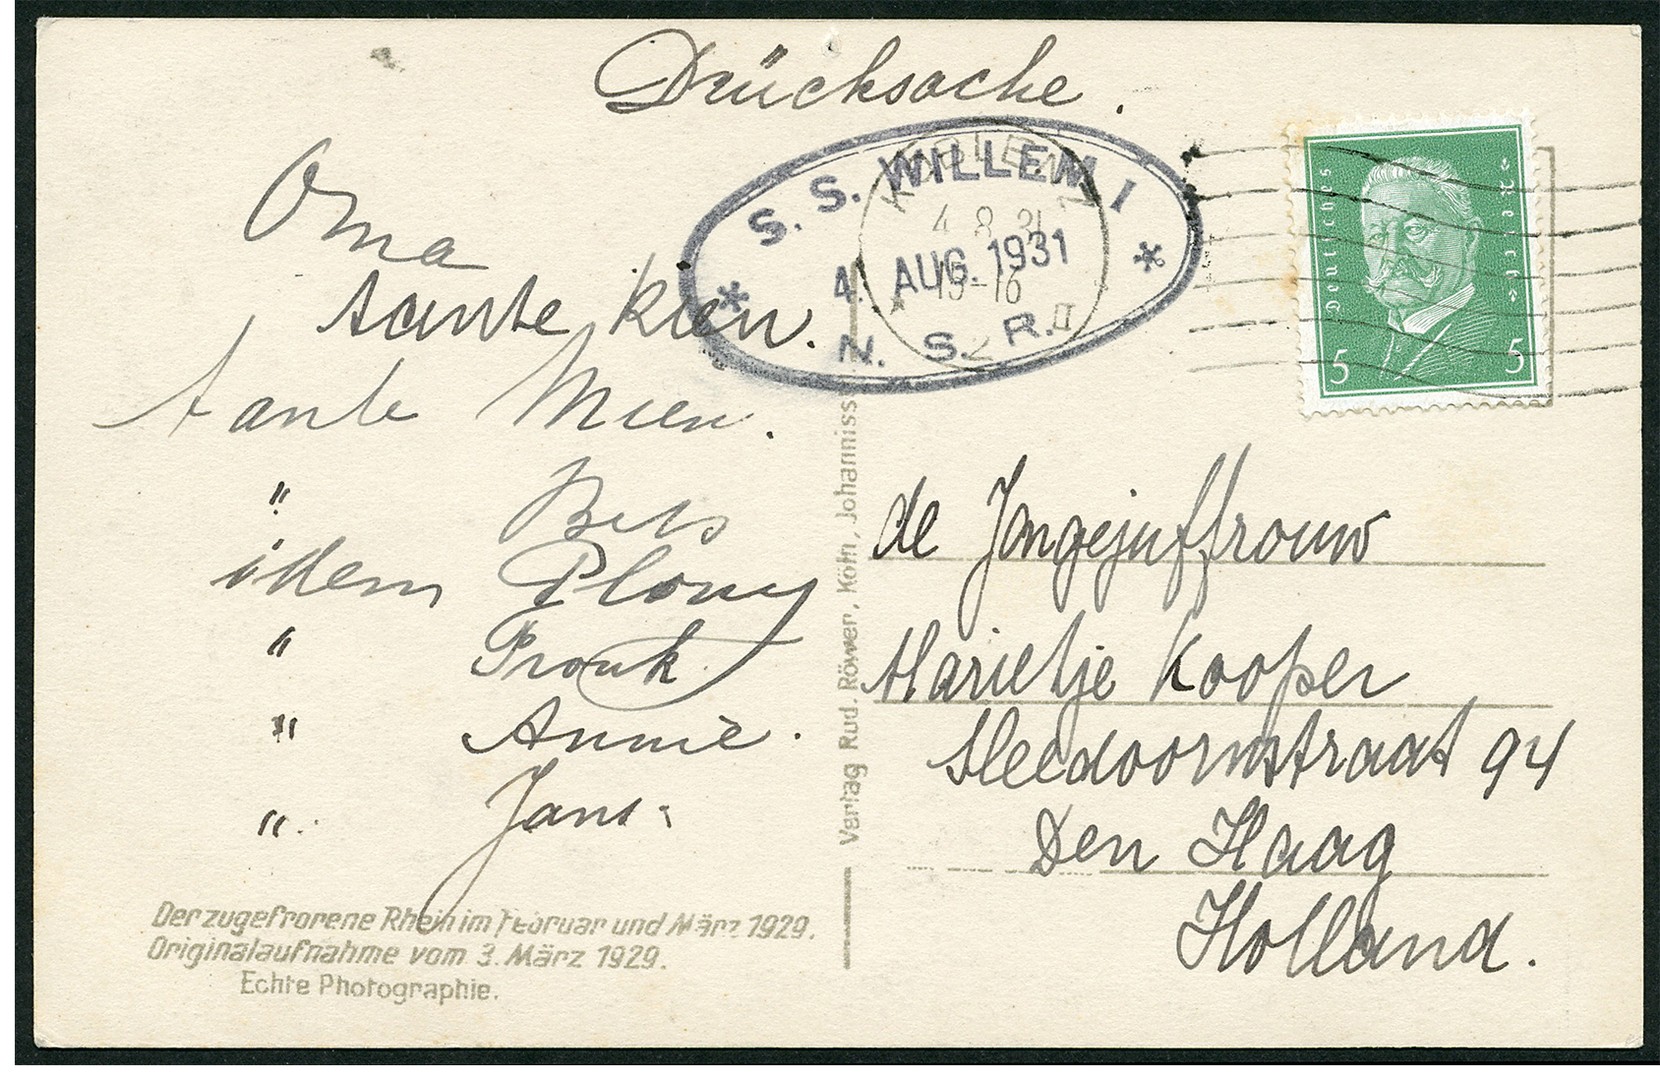 Drücksache.
S. S. WILLEM I
4. AUG. 1931
N. S. R.
KOBLENZ
4 8 31
15-16
II
Deutsches
Reich
5 5
Oma
tante Rien.
tante Mien.
" Bets
idem Plony
" Pronk.
" Annie.
" Jans.
de Jongejuffrouw
Marietje Kooper
Meedoornstraat 94
Den Haag
Holland.
Verlag Rud. Röwer, Köln, Johanniss
Der zugefrorene Rhein im Februar und März 1929.
Originalaufnahme vom 3. März 1929.
Echte Photographie.